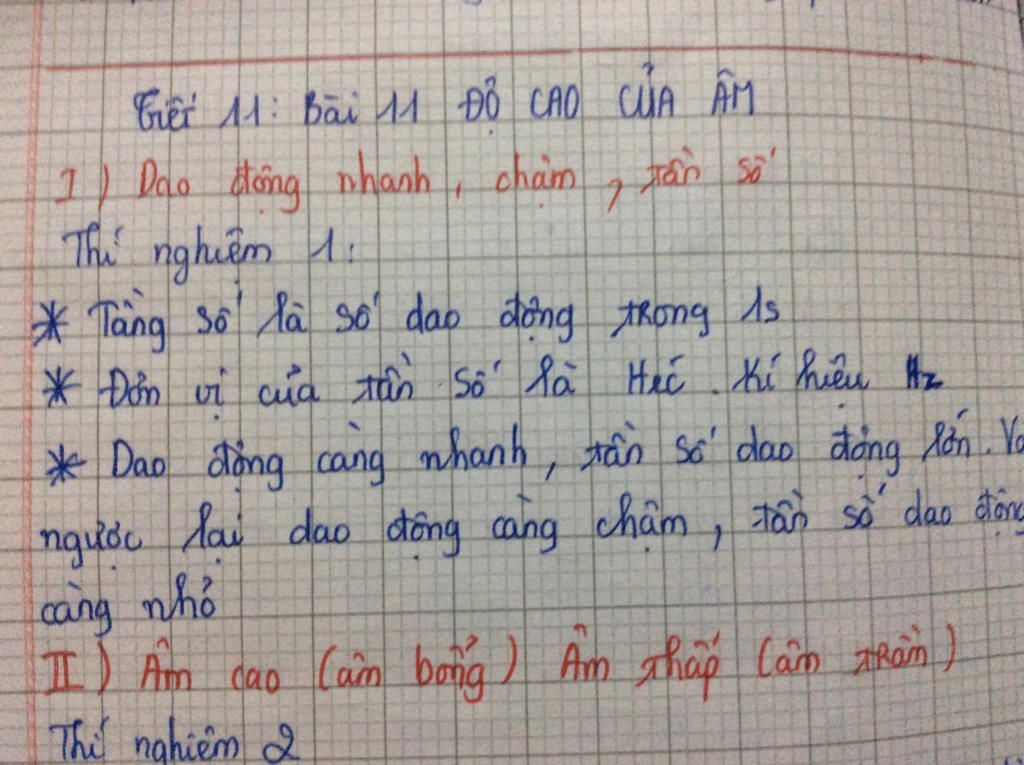 Tiết 11: Bài 11 ĐỘ CAO CỦA ÂM
I) Dao động nhanh, chậm, tần số
Thí nghiệm 1:
* Tầng số là số dao động trong 1s
* Đơn vị của tần số là Héc. Kí hiệu Hz
* Dao động càng nhanh, tần số dao động lớn. Và
ngược lại dao động càng chậm, tần số dao động
càng nhỏ
II) Âm cao (âm bổng) Âm thấp (âm trầm)
Thí nghiệm 2